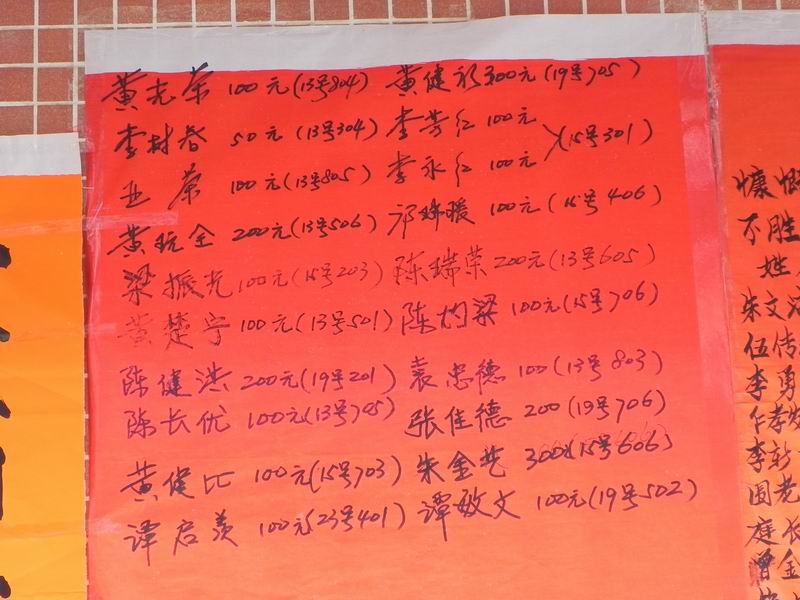 黄志荣 100元(13号804) 黄健 300元(19号705)
李树春 50元(13号304) 李芳红 100元
(15号301)
亚荣 100元(13号805) 李永红 100元
黄玩全 200元(13号506) 邓婵暖 100元(15号406)
梁振光 100元(15号203) 陈瑞荣 200元(13号605)
黄楚宁 100元(13号501) 陈灼梁 100元(15号706)
陈健洪 200元(19号201) 袁忠德 100(13号803)
陈长优 100元(13号705) 张佳德 200(19号706)
黄健比 100元(15号703) 朱金 300(15号606)
谭启羡 100元(23号401) 谭敏文 100元(19号502)
慷慨
不胜
姓
朱文
伍传
李勇
李新
老
庭长
曾金